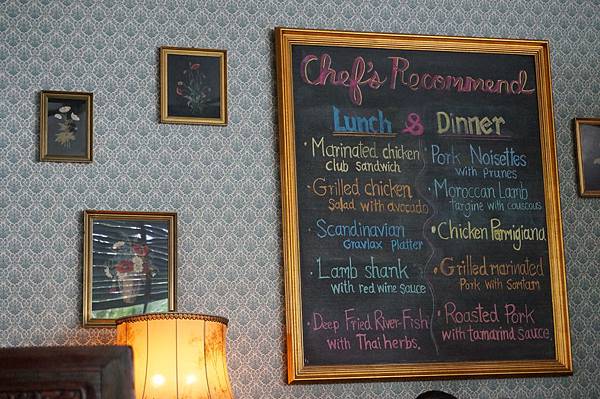 Chef's Recommend
Lunch & Dinner
• Marinated chicken
club sandwich
• Grilled chicken
Salad with avocado
• Scandinavian
Gravlax Platter
• Lamb shank
with red wine sauce
• Deep Fried River-Fish
with Thai herbs.
• Pork Noisettes
with prunes
• Moroccan Lamb
Targine with couscous
• Chicken Parmigiana
• Grilled marinated
Pork with Somtam
• Roasted Pork
with tamarind sauce